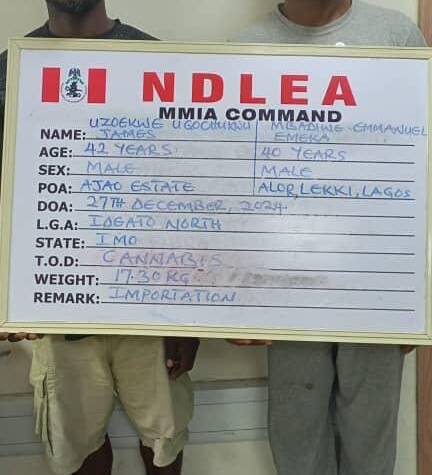 NDLEA
MMIA COMMAND
NAME: UZOEKWE UGOCHUKWU JAMES MBADIWE EMMANUEL EMEKA
AGE: 42 YEARS 40 YEARS
SEX: MALE MALE
POA: AJAO ESTATE ALOR, LEKKI, LAGOS
DOA: 27TH DECEMBER, 2024
L.G.A: IDEATO NORTH
STATE: IMO
T.O.D: CANNABIS
WEIGHT: 17.30 KG
REMARK: IMPORTATION